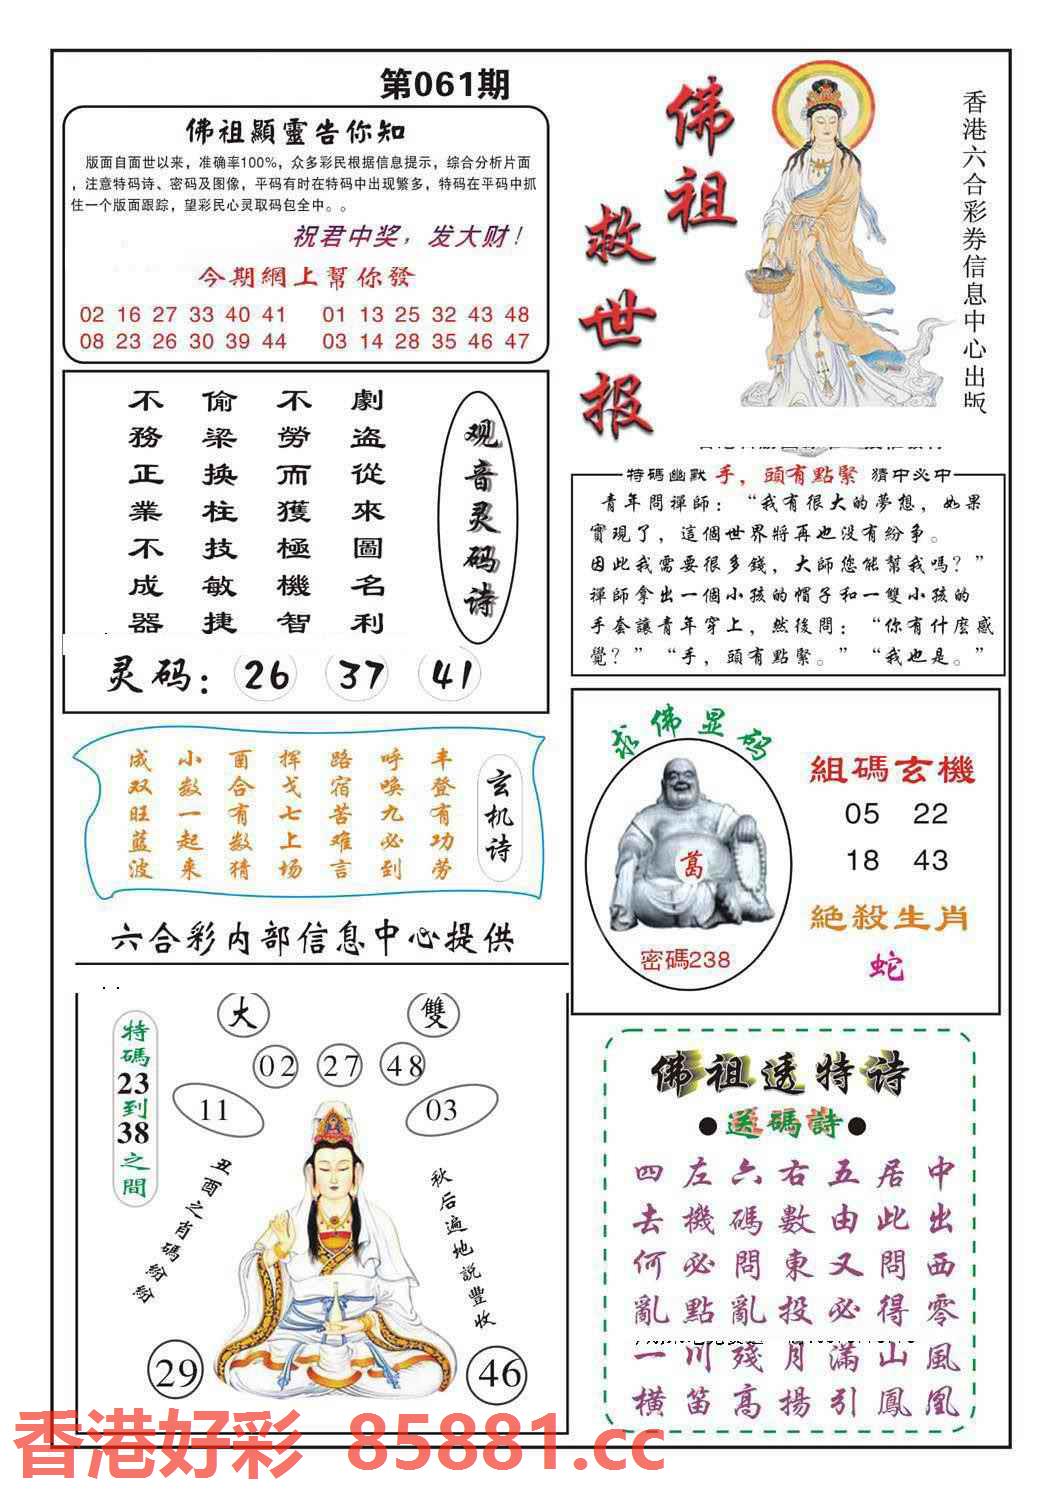 第061期
佛祖顯靈告你知
版面自面世以来，准确率100%，众多彩民根据信息提示，综合分析片面
，注意特码诗、密码及图像，平码有时在特码中出现繁多，特码在平码中抓
住一个版面跟踪，望彩民心灵取码包全中。。
祝君中奖，发大财！
今期網上幫你發
02 16 27 33 40 41 01 13 25 32 43 48
08 23 26 30 39 44 03 14 28 35 46 47
佛祖
救世报
香港六合彩券信息中心出版
观音灵码诗
劇盗從來圖名利
不勞而獲極機智
偷梁换柱技敏捷
不務正業不成器
灵码：26 37 41
特碼幽默 手，頭有點緊 猜中必中
青年問禪師：“我有很大的夢想，如果
實現了，這個世界將再也没有紛争。
因此我需要很多錢，大師您能幫我嗎？”
禪師拿出一個小孩的帽子和一雙小孩的
手套讓青年穿上，然後問：“你有什麼感
覺？”“手，頭有點緊。”“我也是。”
玄机诗
丰登有功劳
呼唤九必到
路宿苦难言
挥戈七上场
酉合有数猜
小数一起来
成双旺蓝波
六合彩内部信息中心提供
求佛显码
葛
密碼238
組碼玄機
05 22
18 43
絶殺生肖
蛇
大 雙
02 27 48
11 03
特碼23到38之間
丑酉之肖碼紛紛
秋后遍地説豐收
29 46
佛祖透特诗
●送碼詩●
中出西零風凰
居此問得山鳳
五由又必滿引
右數東投月揚
六碼問亂殘高
左機必點川笛
四去何亂一橫
香港好彩 85881.cc